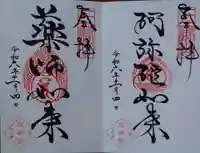 奉拝
阿弥陀如来
令和六年十二月四日
奉拝
薬師如来
令和六年十二月四日